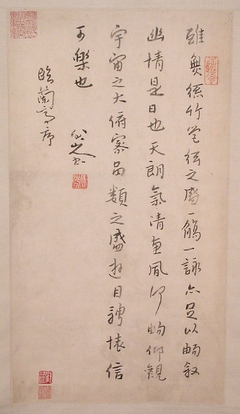 雖無絲竹管弦之盛一觴一詠亦足以暢敘
幽情是日也天朗氣清惠風和暢仰觀
宇宙之大俯察品類之盛遊目騁懷信
可樂也
臨蘭亭序
八大山人